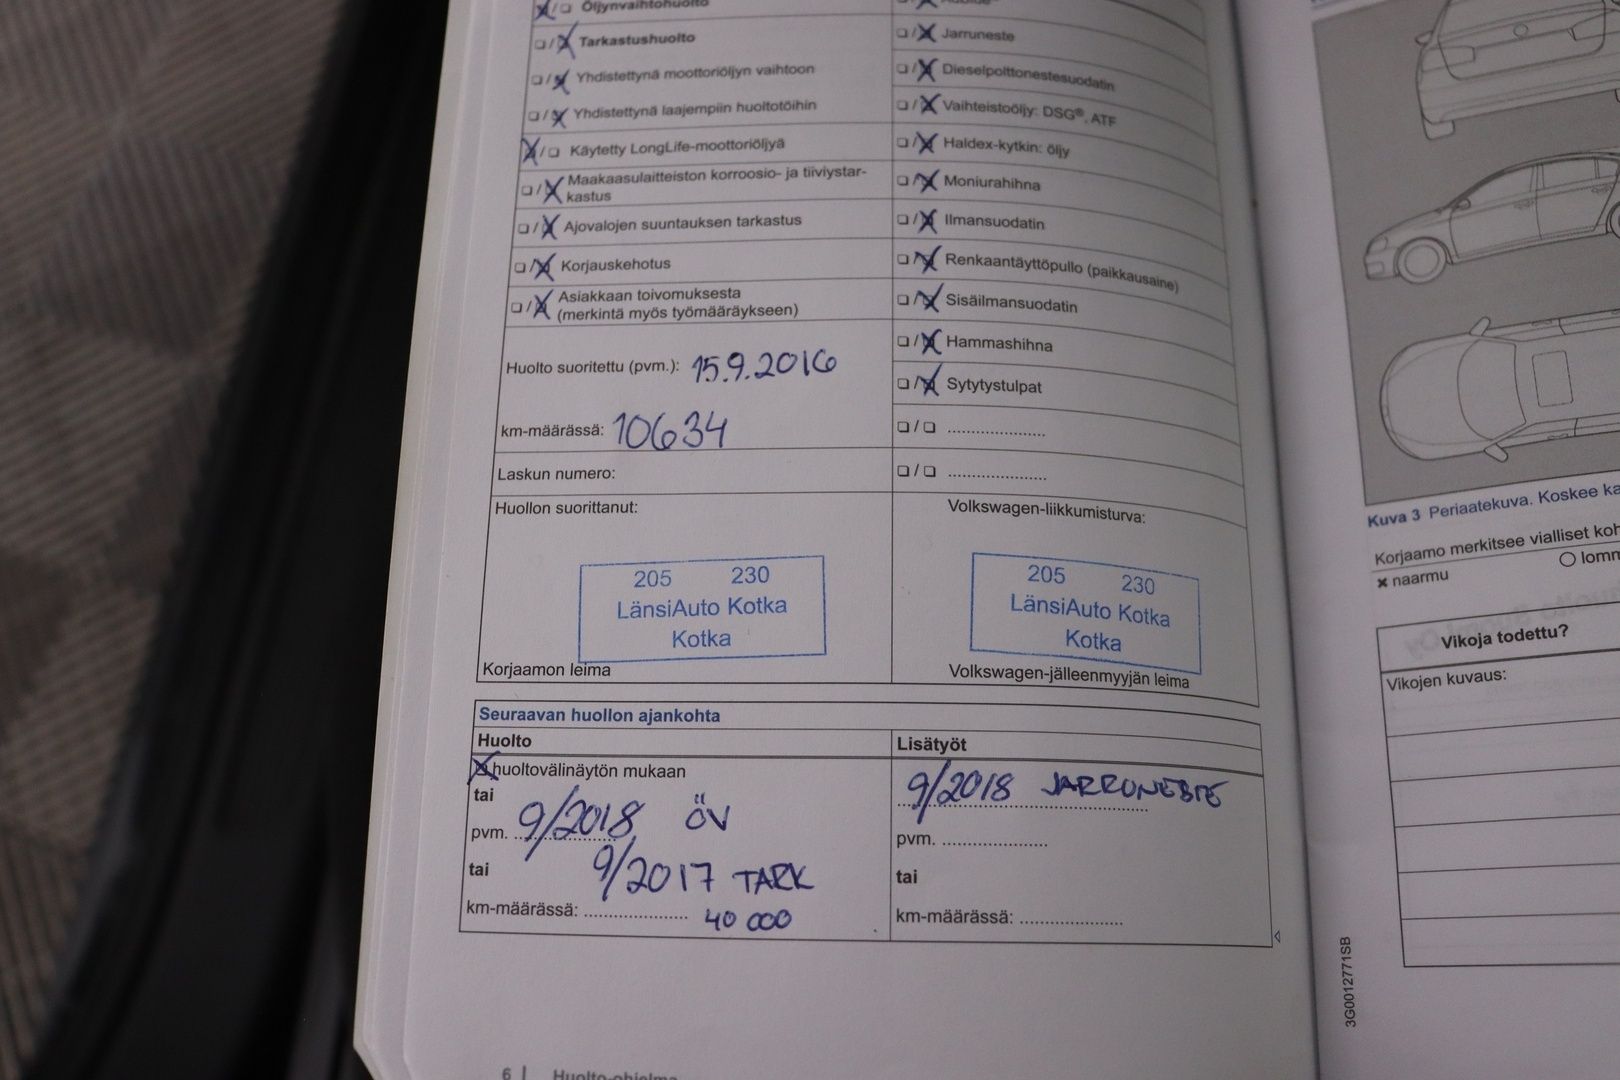 ☒/☐ Öljynvaihtohuolto
☐/☒ Tarkastushuolto
☐/☒ Yhdistettynä moottoriöljyn vaihtoon
☐/☒ Yhdistettynä laajempiin huoltotöihin
☒/☐ Käytetty LongLife-moottoriöljyä
☐/☒ Maakaasulaitteiston korroosio- ja tiiviystar-
kastus
☐/☒ Ajovalojen suuntauksen tarkastus
☐/☒ Korjauskehotus
☐/☒ Asiakkaan toivomuksesta
(merkintä myös työmääräykseen)
Huolto suoritettu (pvm.): 15.9.2016
km-määrässä: 10634
Laskun numero:
Huollon suorittanut:
205 230
LänsiAuto Kotka
Kotka
Korjaamon leima
☐/☒ Jarruneste
☐/☒ Dieselpolttonestesuodatin
☐/☒ Vaihteistoöljy: DSG®, ATF
☐/☒ Haldex-kytkin: öljy
☐/☒ Moniurahihna
☐/☒ Ilmansuodatin
☐/☒ Renkaantäyttöpullo (paikkausaine)
☐/☒ Sisäilmansuodatin
☐/☒ Hammashihna
☐/☒ Sytytystulpat
☐/☐ ....................
☐/☐ ....................
Volkswagen-liikkumisturva:
205 230
LänsiAuto Kotka
Kotka
Volkswagen-jälleenmyyjän leima
Seuraavan huollon ajankohta
Huolto
☒ huoltovälinäytön mukaan
tai
pvm. 9/2018 ÖV
tai 9/2017 TARK
km-määrässä: .................... 40 000
Lisätyöt
9/2018 JARRUNESTE
pvm. ....................
tai
km-määrässä: ....................
6 | Huolto-ohjelma
Kuva 3 Periaatekuva. Koskee
Korjaamo merkitsee vialliset
× naarmu
Vikoja todettu?
Vikojen kuvaus:
3G0012771SB